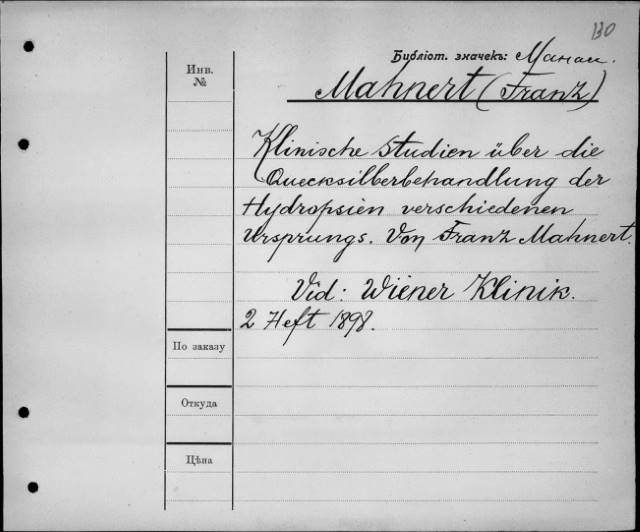 130
Библіот. значекъ:
Инв.
№
Mahnert (Franz)
Klinische Studien über die
Quecksilberbehandlung der
Hydropsien verschiedenen
Ursprungs. Von Franz Mahnert.
Vid: Wiener Klinik.
2 Heft 1898.
По заказу
Откуда
Цѣна